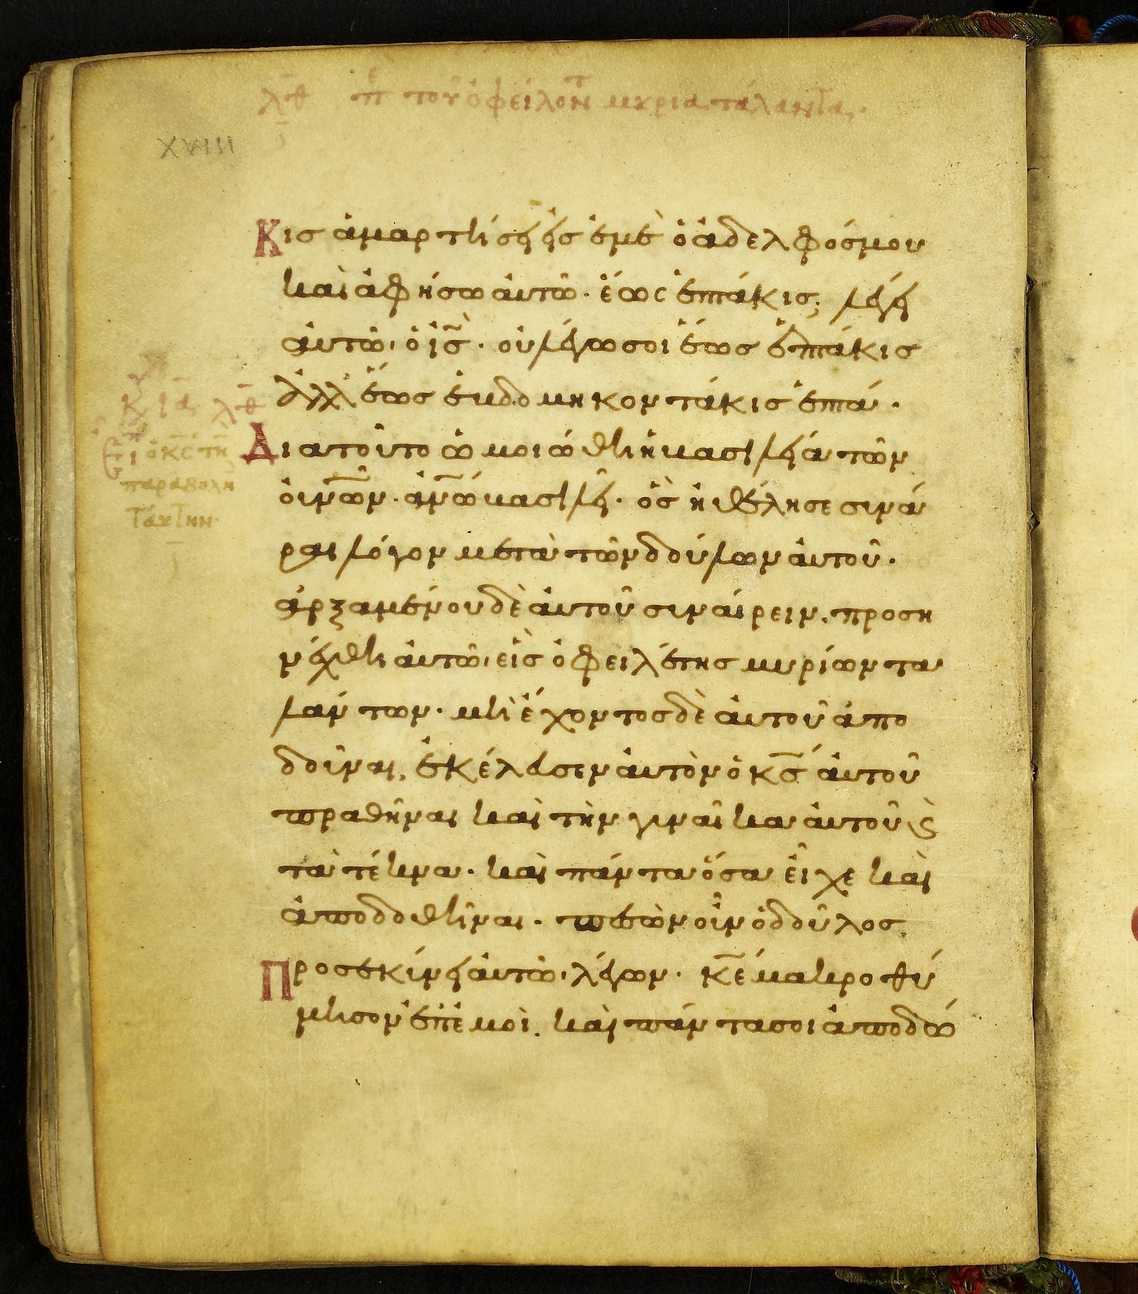 λθ πε τοῦ ὀφείλοντ μύρια τάλαντα.
XVIII
Κις ἁμαρτήσει εἰς ἐμὲ ὁ ἀδελφός μου
καὶ ἀφήσω αὐτῶ· ἕως ἑπτάκις; λέγει
αὐτῶ, ὁ ις̅· οὐ λέγω σοι ἕως ἑπτάκις
ἀλλ' ἕως ἑβδομηκοντάκις ἑπτά·
Κυ ια λθ
Διατοῦτο ὡμοιώθη ἡ βασιλεία τῶν
εἶπ ὁ κς̅ τὴ
παραβολὴ
ταύτην·
οὐνῶν· ἀνω̅ βασιλεῖ· ὃς ἠθέλησε συνᾶ
ραι λόγον μετὰ τῶν δούλων αὐτοῦ·
ἀρξαμένου δὲ αὐτοῦ συναίρειν, προση
νέχθη αὐτῶ, εἷς ὀφειλέτης μυρίων τα
λάντων· μὴ ἔχοντος δὲ αὐτοῦ ἀπο
δοῦναι, ἐκέλευσεν αὐτὸν ὁ κς̅ αὐτοῦ
πραθῆναι καὶ τὴν γυναῖκα αὐτοῦ ϛ̀
τὰ τέκνα· καὶ πάντα ὅσα εἶχε καὶ
ἀποδοθῆναι· πεσὼν οὖν ὁ δοῦλος
Προσεκύνει αὐτῶ, λέγων· κε̅ μακροθύ
μησον ἐπ' ἐμοὶ, καὶ πάντα σοι ἀποδώ